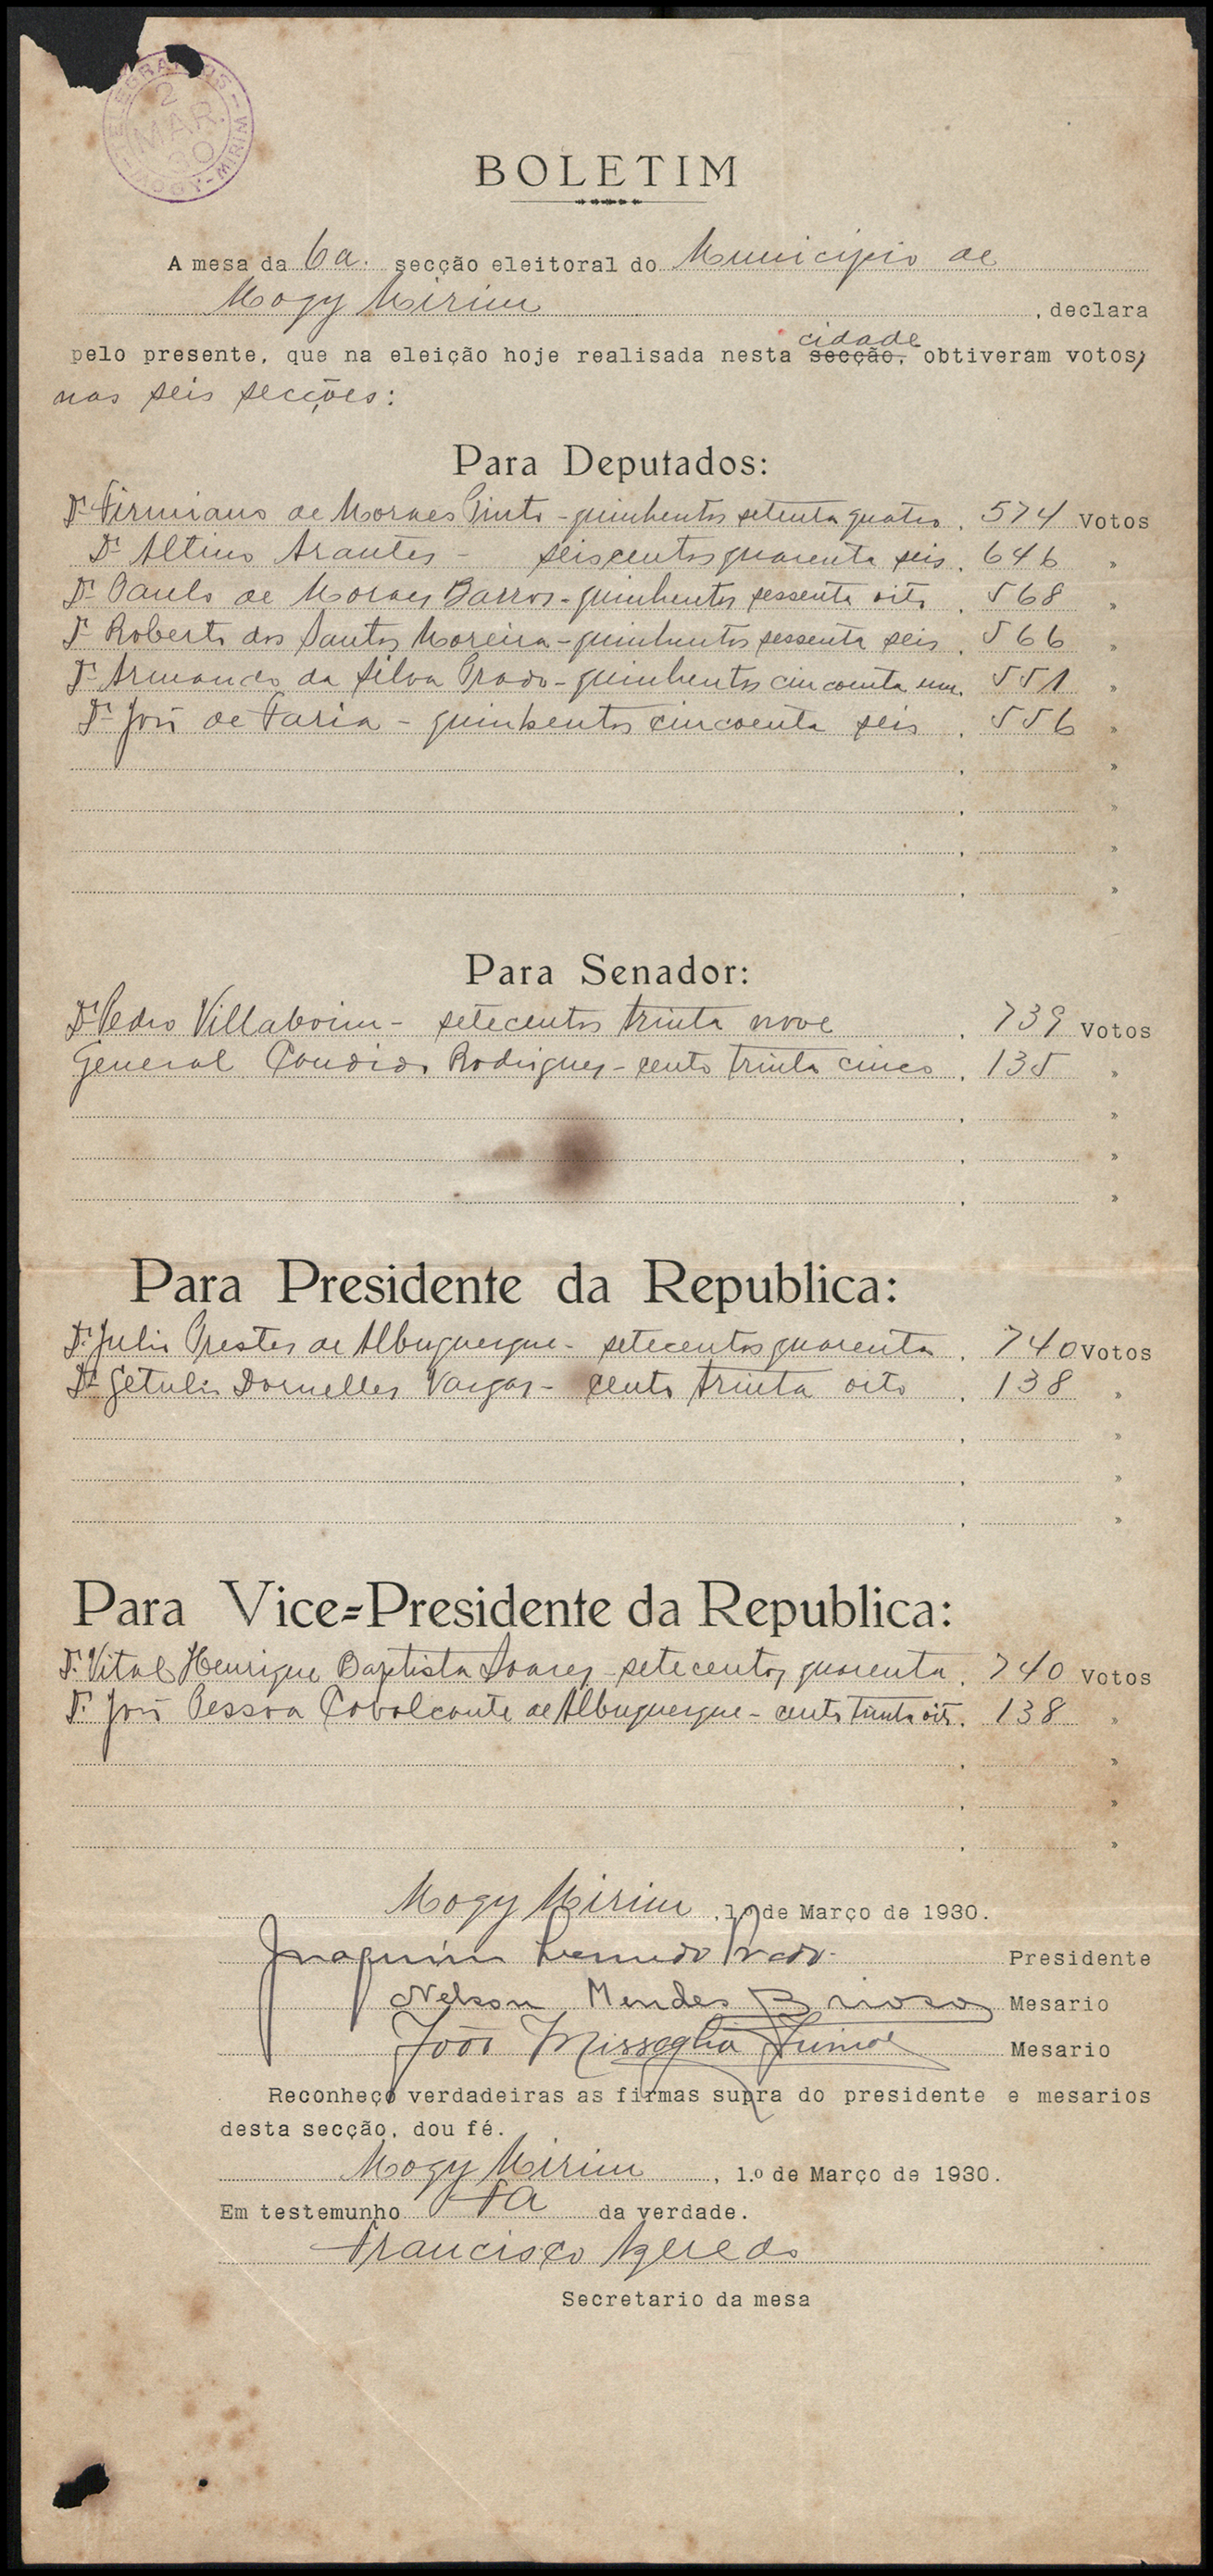 TELEGRAPHOS - MOGY-MIRIM
2
MAR.
30
BOLETIM
A mesa da 6a. secção eleitoral do Municipio de
Mogy Mirim, declara
cidade
pelo presente, que na eleição hoje realisada nesta secção, obtiveram votos,
nas seis secções:
Para Deputados:
Dr. Firmiano de Moraes Pinto - quinhentos setenta quatro. 574 votos
Dr. Altino Arantes - seiscentos quarenta seis. 646 »
Dr. Paulo de Moraes Barros - quinhentos sessenta oito. 568 »
Dr. Roberto dos Santos Moreira - quinhentos sessenta seis. 566 »
Dr. Armando da Silva Prado - quinhentos cincoenta um. 551 »
Dr. José de Faria - quinhentos cincoenta seis. 556 »
Para Senador:
Dr. Pedro Villaboim - setecentos trinta nove. 739 votos
General Candido Rodrigues - cento trinta cinco. 135 »
Para Presidente da Republica:
Dr. Julio Prestes de Albuquerque - setecentos quarenta. 740 votos
Dr. Getulio Dornelles Vargas - cento trinta oito. 138 »
Para Vice=Presidente da Republica:
Dr. Vital Henrique Baptista Soares - setecentos quarenta. 740 votos
Dr. João Pessoa Cavalcante de Albuquerque - cento trinta oito. 138 »
Mogy Mirim, 1.º de Março de 1930.
Joaquim Prado. Presidente
Nelson Mendes Mesario
João Missaglia Junior Mesario
Reconheço verdadeiras as firmas supra do presidente e mesarios
desta secção, dou fé.
Mogy Mirim, 1.º de Março de 1930.
Em testemunho FA da verdade.
Francisco Azeredo
Secretario da mesa